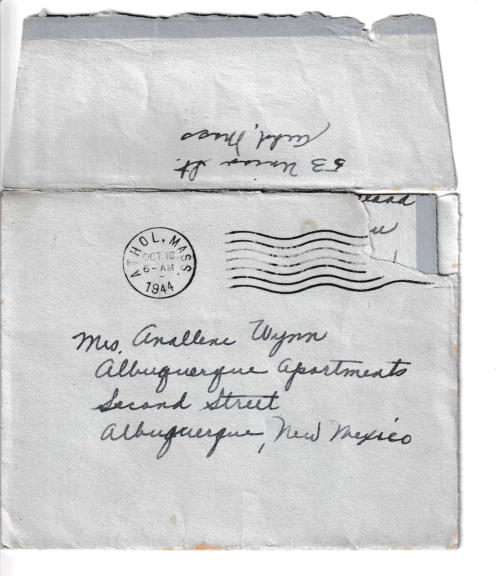 53 Union St.
Athol, Mass
ATHOL, MASS.
OCT 16
6-AM
1944
Mrs. Anallene Wynn
Albuquerque Apartments
Second Street
Albuquerque, New Mexico